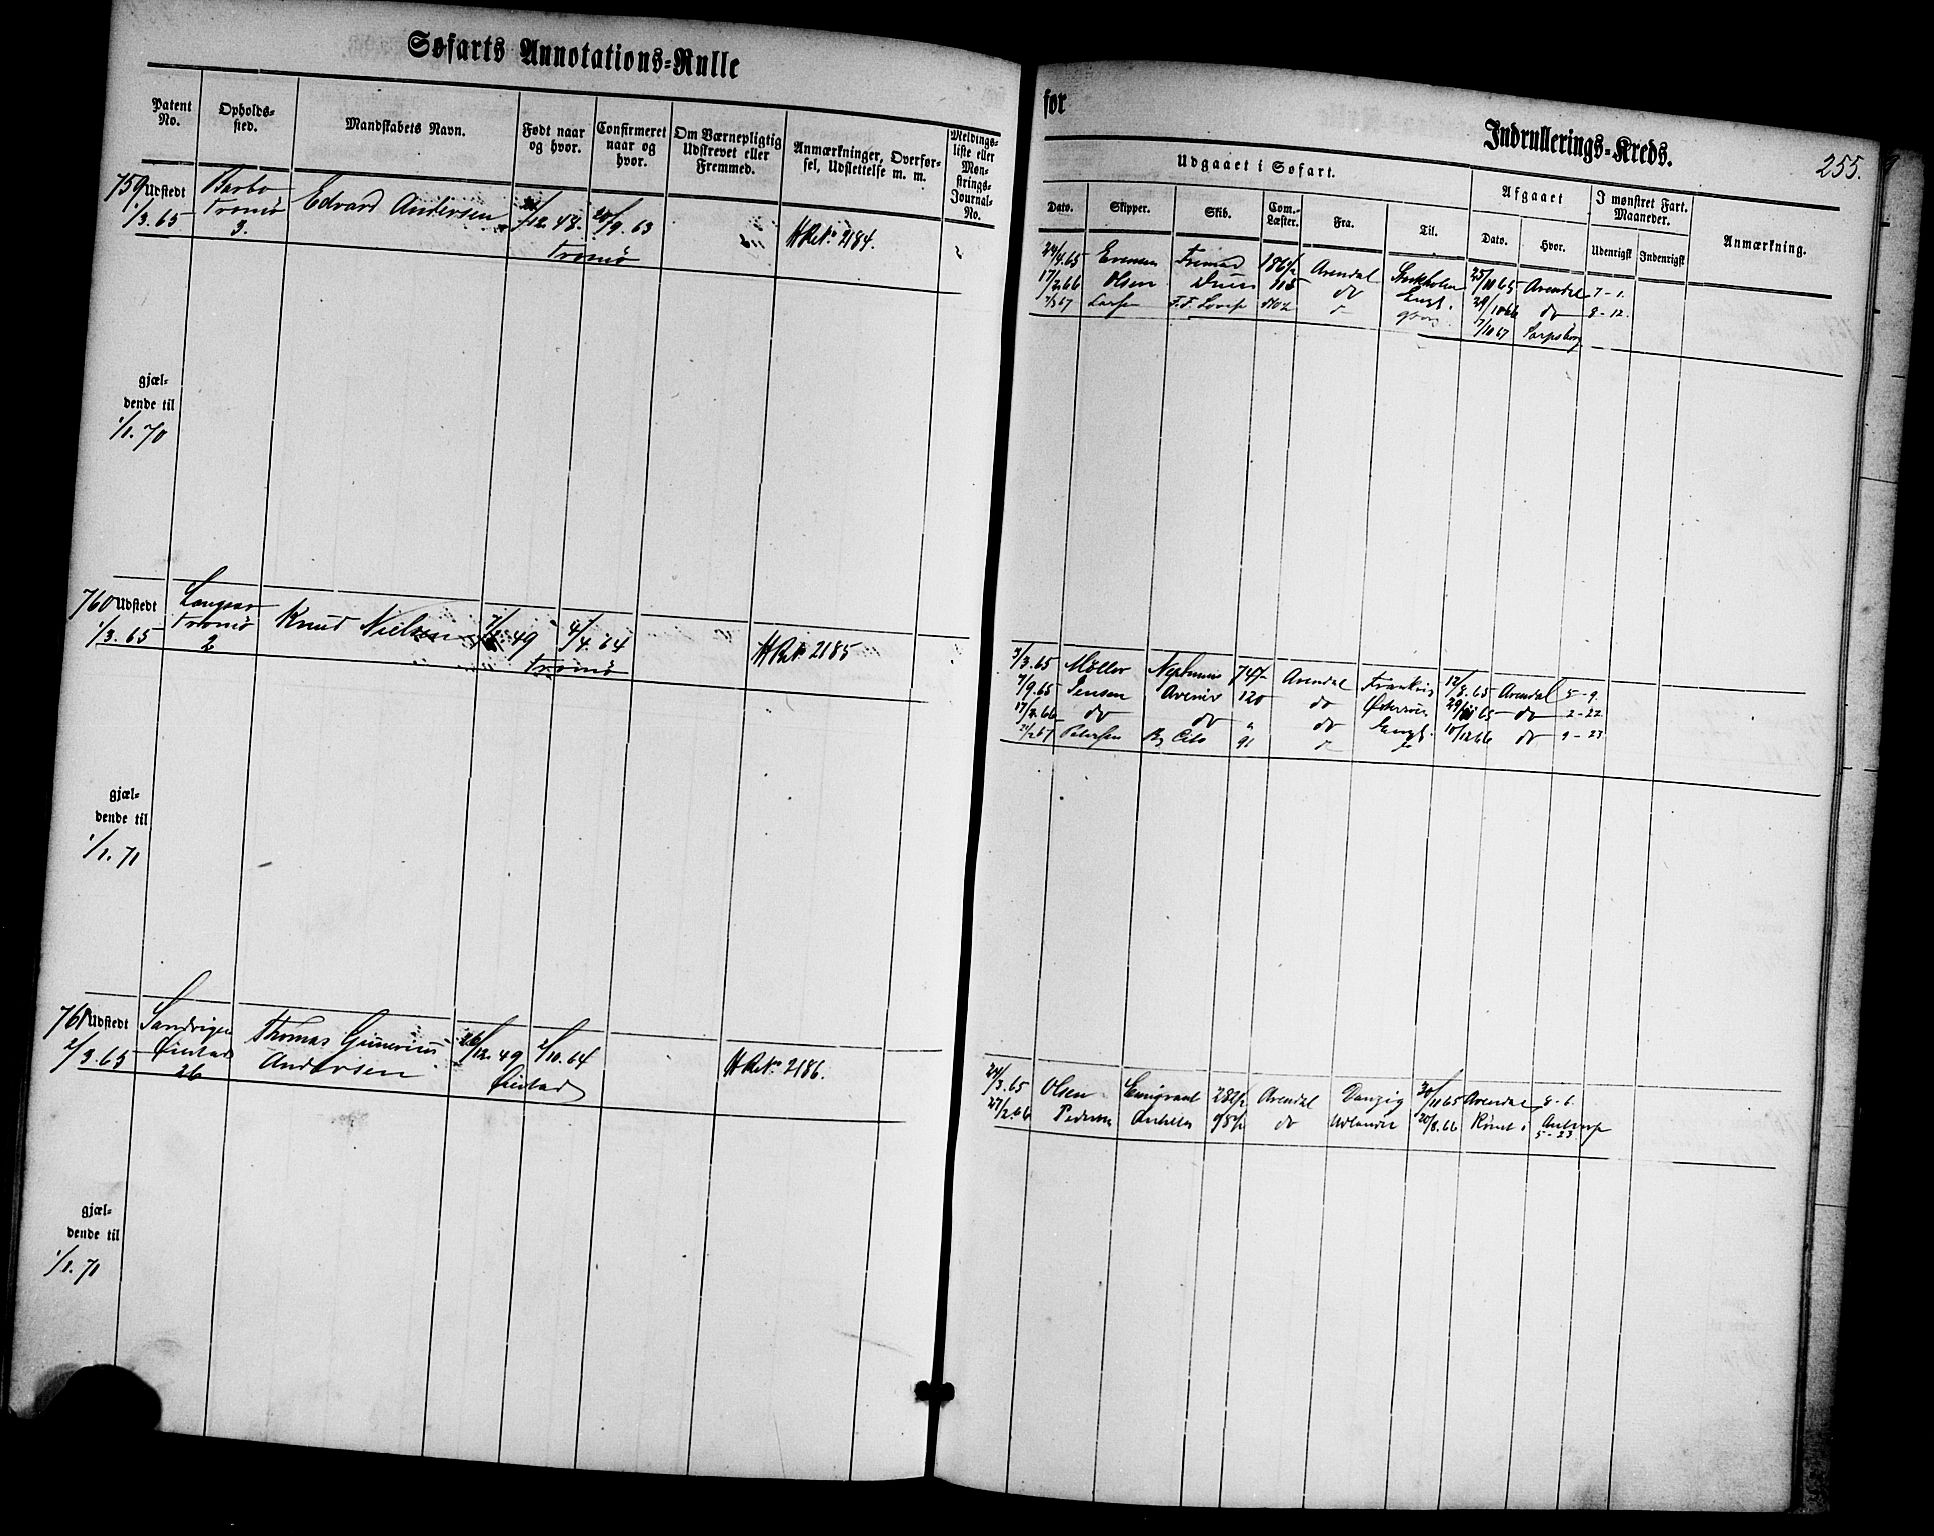 Søfarts Annotations-Rulle
Patent No.
Opholds-sted.
Mandskabets Navn.
Født naar og hvor.
Confirmeret naar og hvor.
Om Værnepligtig Udskrevet eller Fremmed.
Anmærkninger, Overførsel, Udslettelse m. m.
Meldingsliste eller Mønstrings-Journal-No.
759 Udstedt
1/3.65
Barbo
Tromø
3.
Edvard Andersen
/12.48.
20/9.63
Tromø
H Rt. 2184.
gjæl-
dende til
1/1.70
760 Udstedt
1/3.65
Tromø
2
Knud Nielsen
49
4/4.64
Tromø
H Rt. 2185
gjæl-
dende til
1/1.71
761 Udstedt
2/3.65
Sandvigen
Øiestad
26
Thomas Gunerius
Andersen
26/12.49
2/10.64
Øiestad
H Rt. 2186.
gjæl-
dende til
1/1.71
for
Indrullerings-Kreds.
255.
Udgaaet i Søfart.
Afgaaet
I mønstret Fart. Maaneder.
Anmærkning.
Dato.
Skipper.
Skib.
Com.-Læster.
Fra.
Til.
Dato.
Hvor.
Udenrigsk
Indenrigsk
24/4.65 Evensen Fremad 186 1/2 Arendal Stockholm 25/11 65 Arendal 7-1.
17/2.66 Olsen 115 do Engl. 29/10 66 do 8-12.
67 Larsen 7/10 67 Sarpsborg
3/3.65 Møller Neptunus 74 Arendal 12/8.65 Arendal 5-9
7/9.65 Jensen Avenir 120 do 29/11 65 do 2-22
17/2.66 do do " do Engl. 10/12 66 do 9-23
67 Petersen Cito 91
24/3.65 Olsen Emigrant 282 1/2 Arendal Danzig 30/11 65 Arendal 8-6
27/2.66 Pedersen Achilles do Udlandet 20/8.66 Rømt i Antwerp
5-23